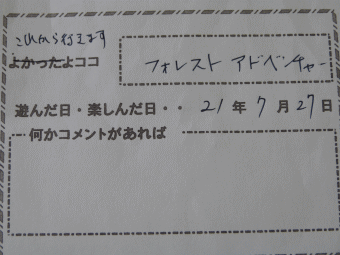 これから行きます
よかったよココ
フォレスト アドベンチャー
遊んだ日・楽しんだ日・・ 21 年 7 月 27 日
何かコメントがあれば